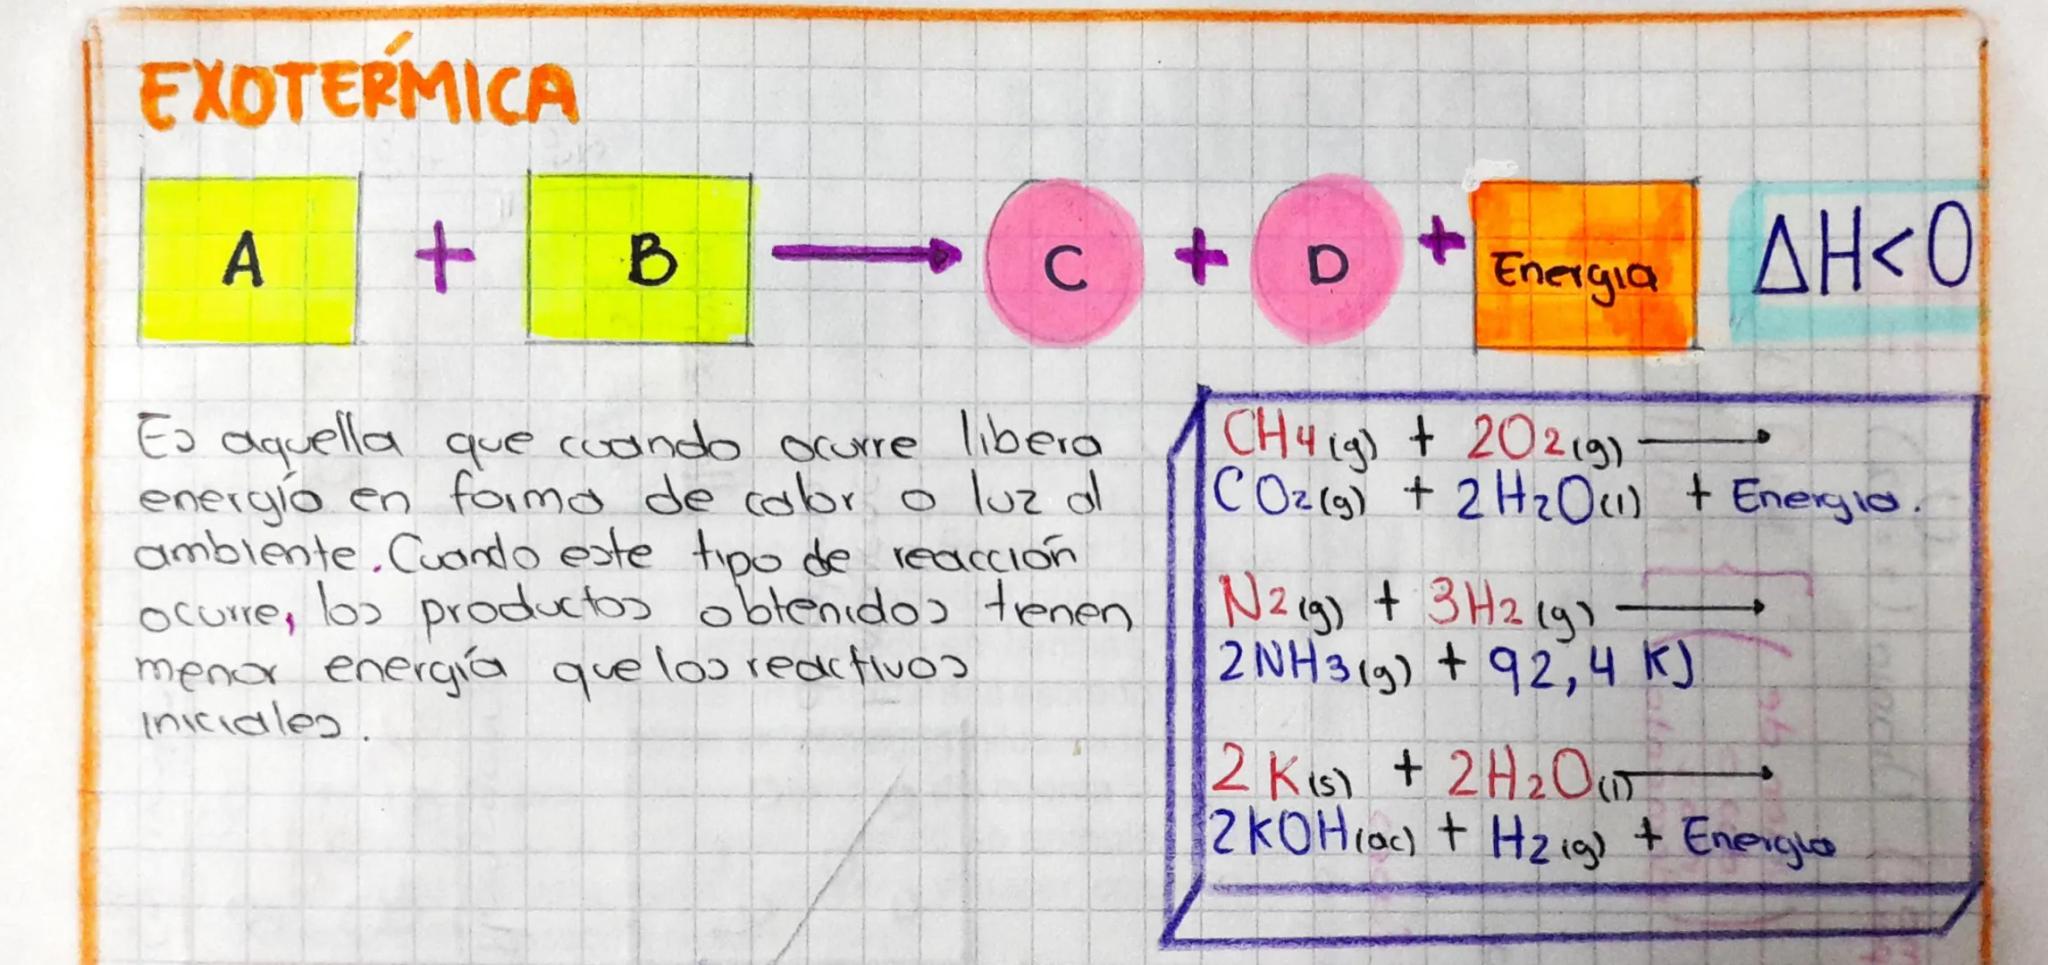 EXOTERMICA
A + B → C + D + Energia ΔH<0
Es aquella que cuando ocurre libera
energía en forma de calor o luz al
ambiente. Cuando este tipo de reacción
ocurre, los productos obtenidos tienen
menor energía que los reactivos
iniciales.
CH4(g) + 2O2(g) →
CO2(g) + 2H2O(l) + Energia.
N2(g) + 3H2(g) →
2NH3(g) + 92,4 KJ
2K(s) + 2H2O(l) →
2KOH(ac) + H2(g) + Energia